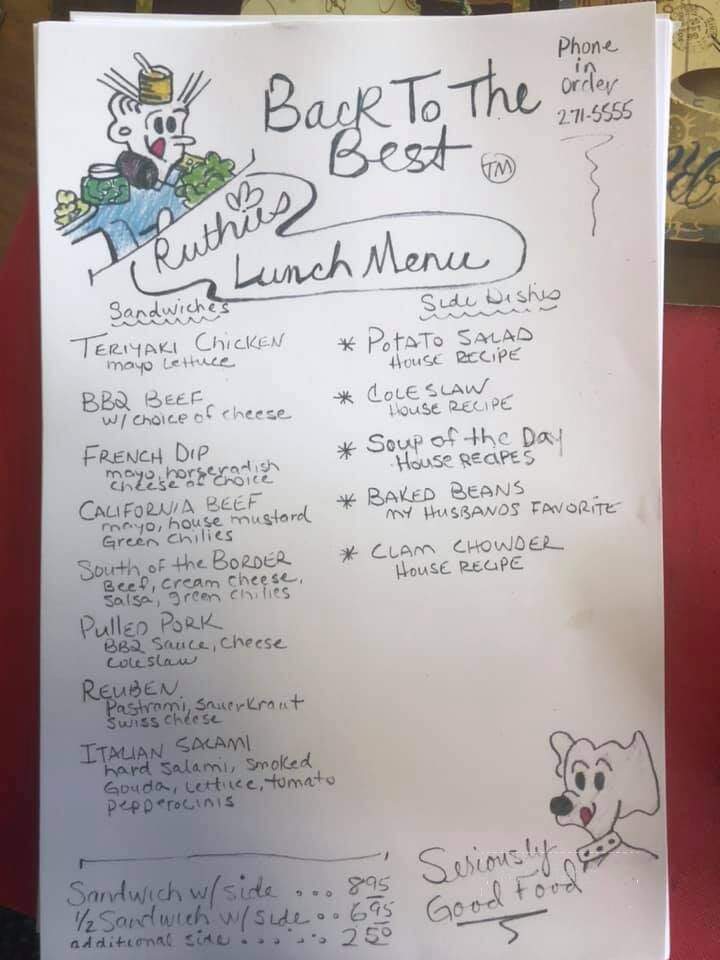 Back To The
Best TM
Phone
in
order
271-5555
Ruthies
Lunch Menu
Sandwiches
TERIYAKI CHICKEN
mayo Lettuce
BBQ BEEF
w/ choice of cheese
FRENCH DIP
mayo, horseradish
cheese of choice
CALIFORNIA BEEF
mayo, house mustard
Green chilies
South of the BORDER
Beef, cream cheese,
salsa, green chilies
Pulled PORK
BBQ Sauce, cheese
coleslaw
REUBEN
Pastrami, sauerkraut
swiss cheese
ITALIAN SALAMI
hard salami, smoked
Gouda, Lettuce, tomato
pepperocinis
Side Dishes
* POTATO SALAD
HOUSE RECIPE
* COLE SLAW
House RECIPE
* Soup of the Day
House RECIPES
* BAKED BEANS
MY HUSBANDS FAVORITE
* CLAM CHOWDER
HOUSE RECIPE
Sandwich w/ side ... 895
1/2 Sandwich w/ side .. 695
additional side ...... 250
Seriously
Good Food